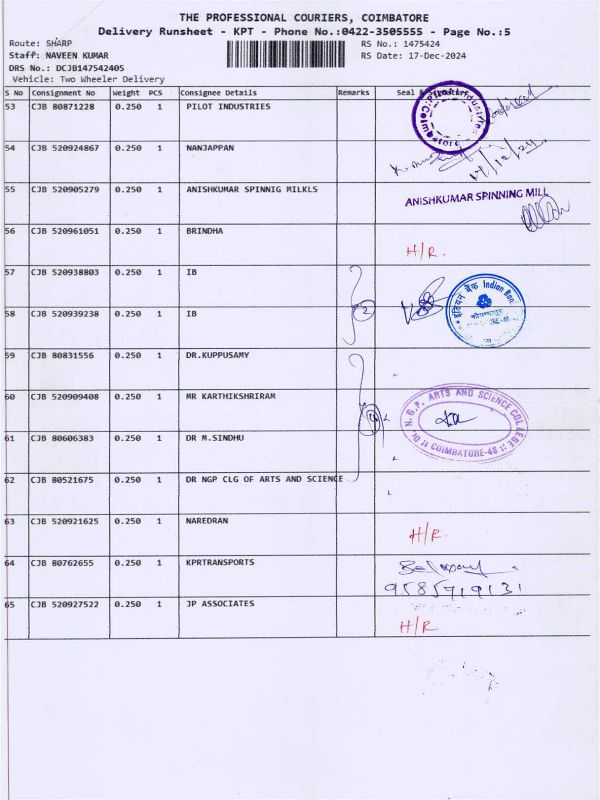 THE PROFESSIONAL COURIERS, COIMBATORE
Delivery Runsheet - KPT - Phone No.:0422-3505555 - Page No.:5
Route: SHARP
RS No.: 1475424
Staff: NAVEEN KUMAR
RS Date: 17-Dec-2024
DRS No.: DCJB147542405
Vehicle: Two Wheeler Delivery
S No Consignment No Weight PCS Consignee Details Remarks Seal &
53 CJB 80871228 0.250 1 PILOT INDUSTRIES
Pilot Industries Coimbatore
54 CJB 520924867 0.250 1 NANJAPPAN
17/12/24
55 CJB 520905279 0.250 1 ANISHKUMAR SPINNIG MILKLS
ANISHKUMAR SPINNING MILL
56 CJB 520961051 0.250 1 BRINDHA
H/R.
57 CJB 520938803 0.250 1 IB
2
इंडियन बैंक Indian Bank
58 CJB 520939238 0.250 1 IB
59 CJB 80831556 0.250 1 DR.KUPPUSAMY
60 CJB 520909408 0.250 1 MR KARTHIKSHRIRAM
Dr. N.G.P. ARTS AND SCIENCE COLLEGE
COIMBATORE-48
61 CJB 80606383 0.250 1 DR M.SINDHU
62 CJB 80521675 0.250 1 DR NGP CLG OF ARTS AND SCIENCE
63 CJB 520921625 0.250 1 NAREDRAN
H/R.
64 CJB 80762655 0.250 1 KPRTRANSPORTS
9585719131
65 CJB 520927522 0.250 1 JP ASSOCIATES
H/R